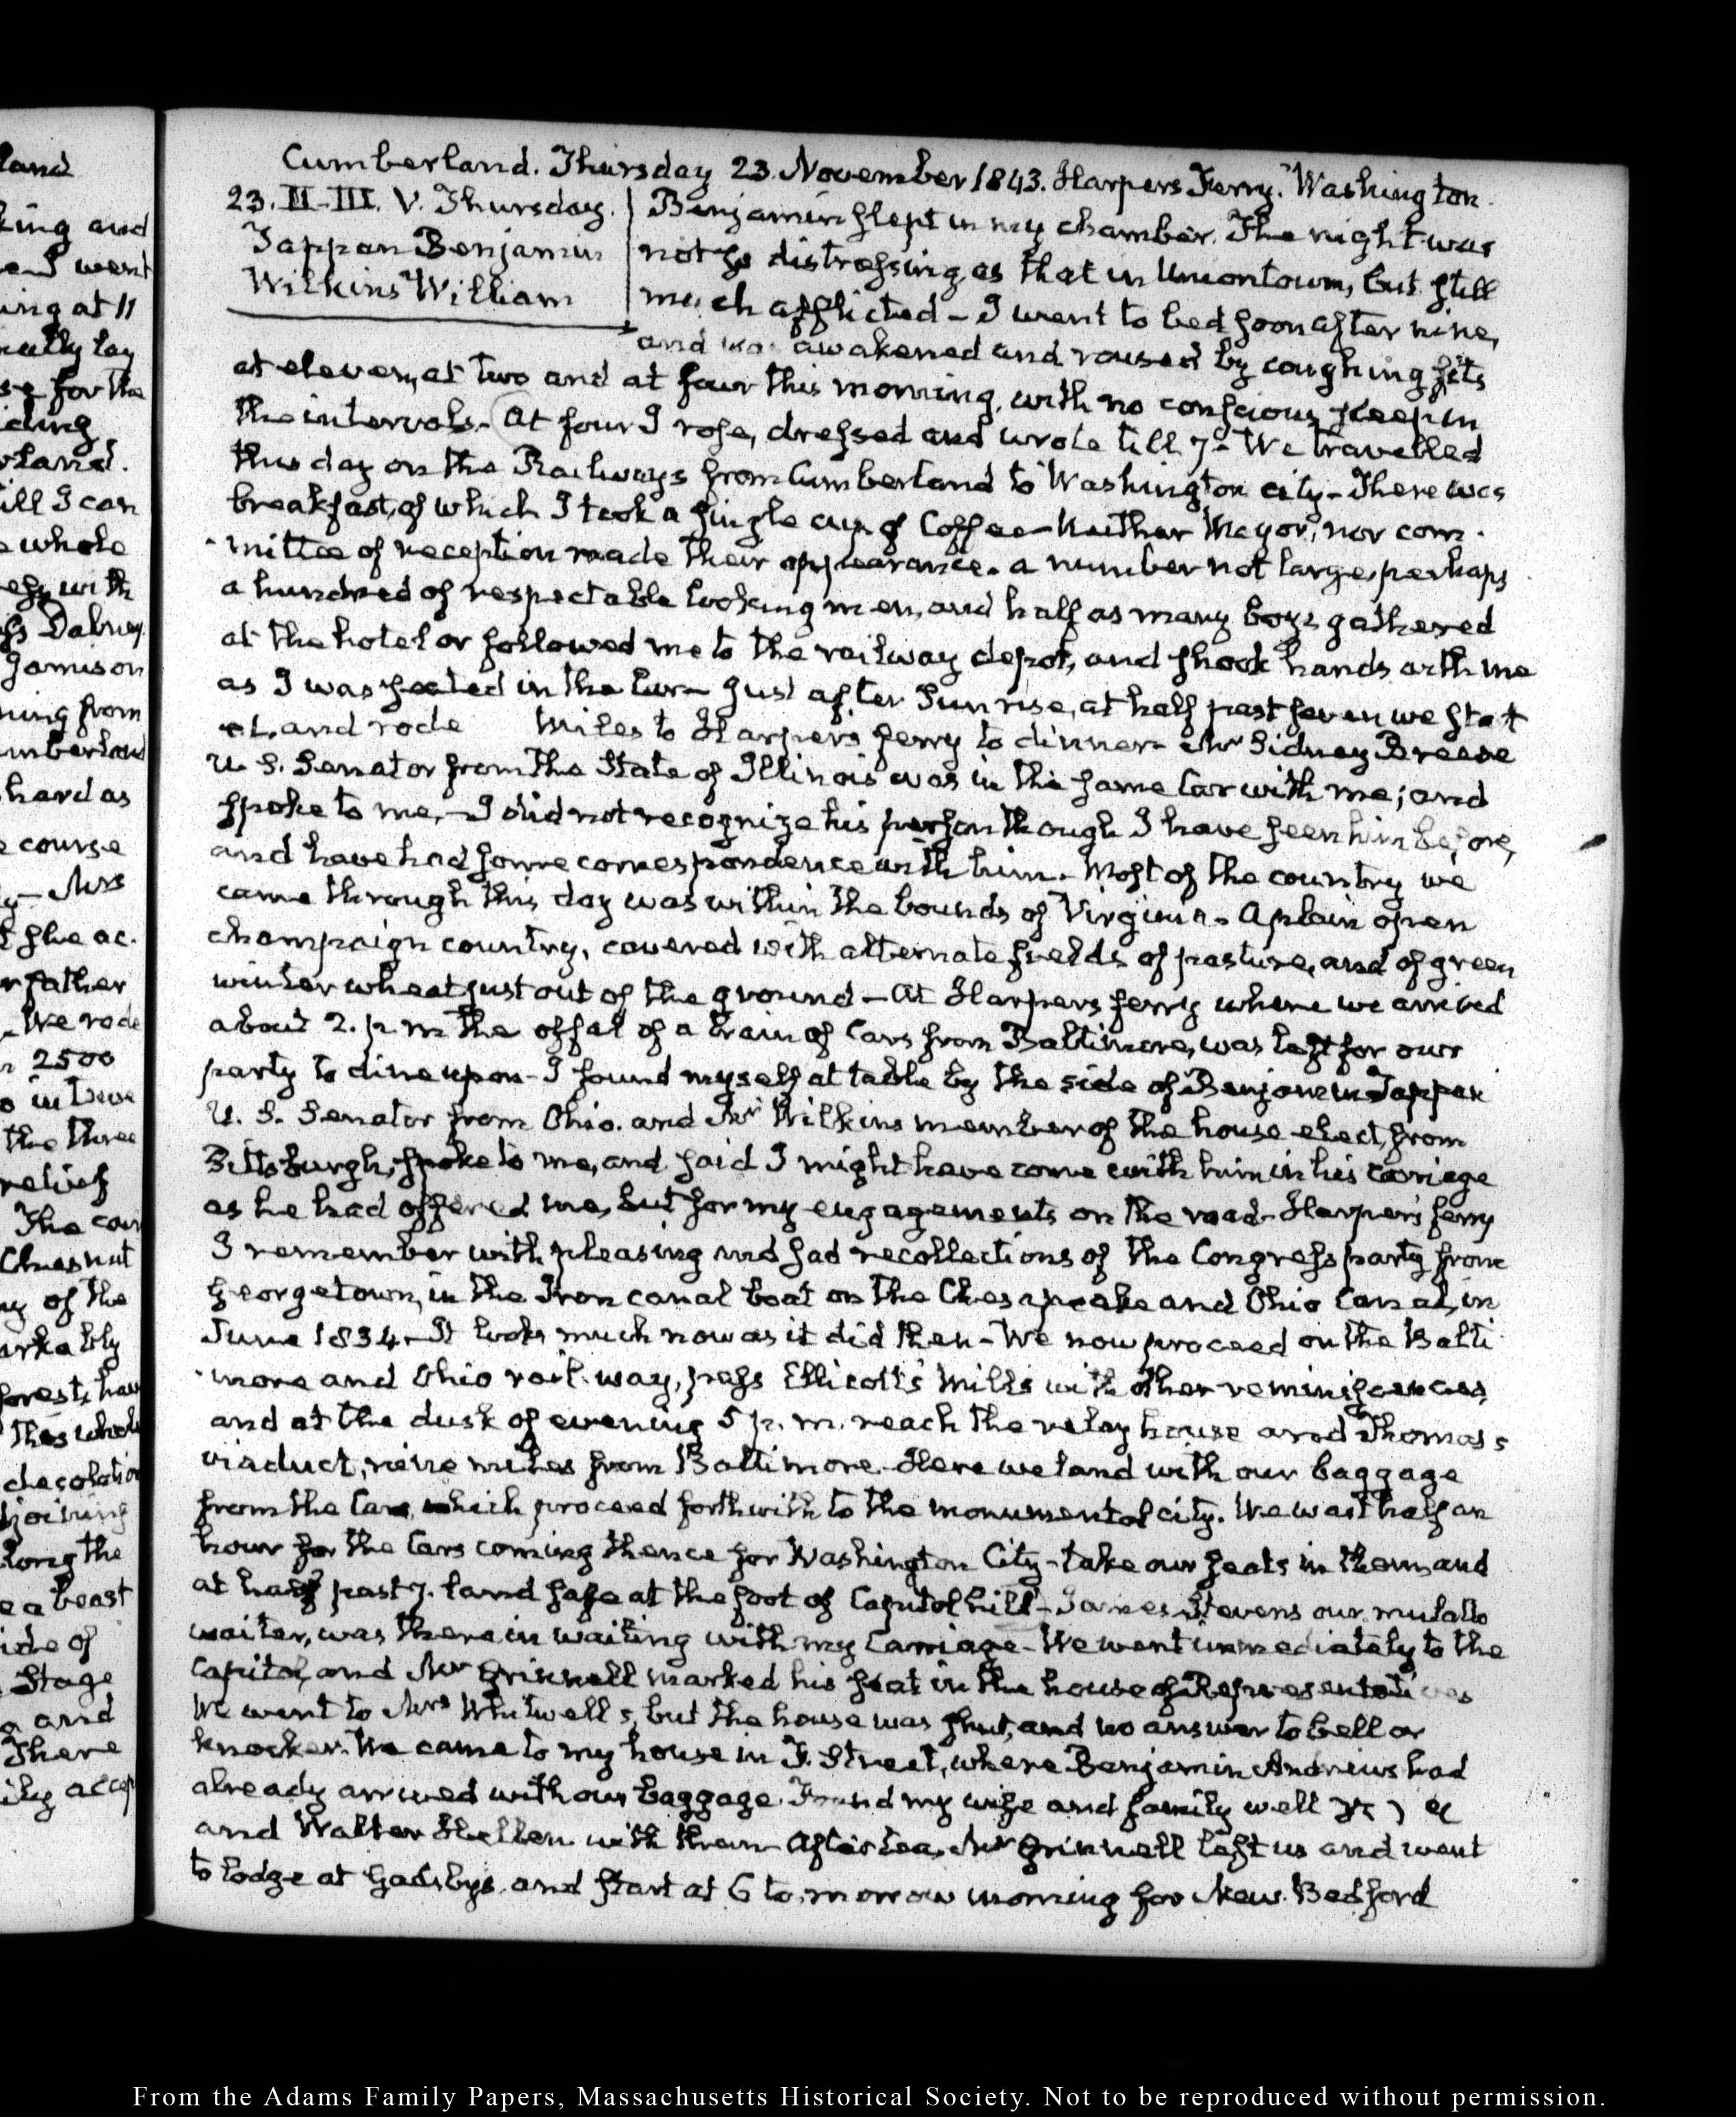 land
king and
I went
ing at 11
cully lay
se for the
iding
rland.
ill I can
e whole
efs with
fs Dabney
Jamison
ning from
umberland
hard as
e course
y - Mrs
t she ac.
r father
We rode
n 2500
o in twe
the three
relief
The coun
Chesnut
ny of the
arkably
forest, hav
This whole
desolation
joining
along the
e a beast
ide of
Stage
a and
There
ily accep
Cumberland. Thursday 23. November 1843. Harpers Ferry. Washington.
23. II-III. V. Thursday.
Tappan Benjamin
Wilkins William
Benjamin slept in my chamber. The night was
not so distressing as that in Uniontown, but still
much afflicted - I went to bed soon after nine,
and was awakened and roused by coughing fits
at eleven, at two and at four this morning, with no conscious sleep in
the intervals. At four I rose, dressed and wrote till 7. We travelled
this day on the Railways from Cumberland to Washington city - There was
breakfast, of which I took a single cup of Coffee - Neither Mayor, nor com-
-mittee of reception made their appearance. a number not large, perhaps
a hundred of respectable looking men, and half as many boys gathered
at the hotel or followed me to the railway depot, and shook hands with me
as I was seated in the Car - Just after Sunrise, at half past seven we start
-ed, and rode miles to Harper's ferry to dinner - Mr Sidney Breese
U. S. Senator from the State of Illinois was in the same Car with me; and
spoke to me, - I did not recognize his person though I have seen him before,
and have had some correspondence with him. Most of the country we
came through this day was within the bounds of Virginia - A plain open
champaign country, covered with alternate fields of pasture, and of green
winter wheat just out of the ground - At Harpers ferry where we arrived
about 2. p. m the offal of a train of Cars from Baltimore, was left for our
party to dine upon - I found myself at table by the side of Benjamin Tappan
U. S. Senator from Ohio. and Mr Wilkins member of the house elect, from
Pittsburgh, spoke to me, and said I might have come with him in his carriage
as he had offered me, but for my engagements on the road - Harper's ferry
I remember with pleasing and sad recollections of the Congress party from
Georgetown, in the Iron canal boat on the Chesapeake and Ohio Canal, in
June 1834 - It looks much now as it did then - We now proceed on the Balti
-more and Ohio rail-way, pass Ellicott's Mills with other reminiscences,
and at the dusk of evening 5 p. m. reach the relay house and Thomas's
viaduct, nine miles from Baltimore. Here we land with our baggage
from the Cars, which proceed forthwith to the monumental city. We wait half an
hour for the Cars coming thence for Washington City - take our seats in them and
at half past 7. land safe at the foot of Capitol hill - James Stevens our mulatto
waiter, was there in waiting with my Carriage - We went immediately to the
Capitol, and Mr Grinnell marked his seat in the house of Representatives
We went to Mrs Whitwell's, but the house was shut, and no answer to bell or
knocker. We came to my house in F. Street, where Benjamin Andrews had
already arrived with our baggage. Found my wife and family well
and Walter Hellen with them - After tea, Mr Grinnell left us and went
to lodge at Gadsby's. and start at 6 to-morrow morning for New-Bedford
From the Adams Family Papers, Massachusetts Historical Society. Not to be reproduced without permission.